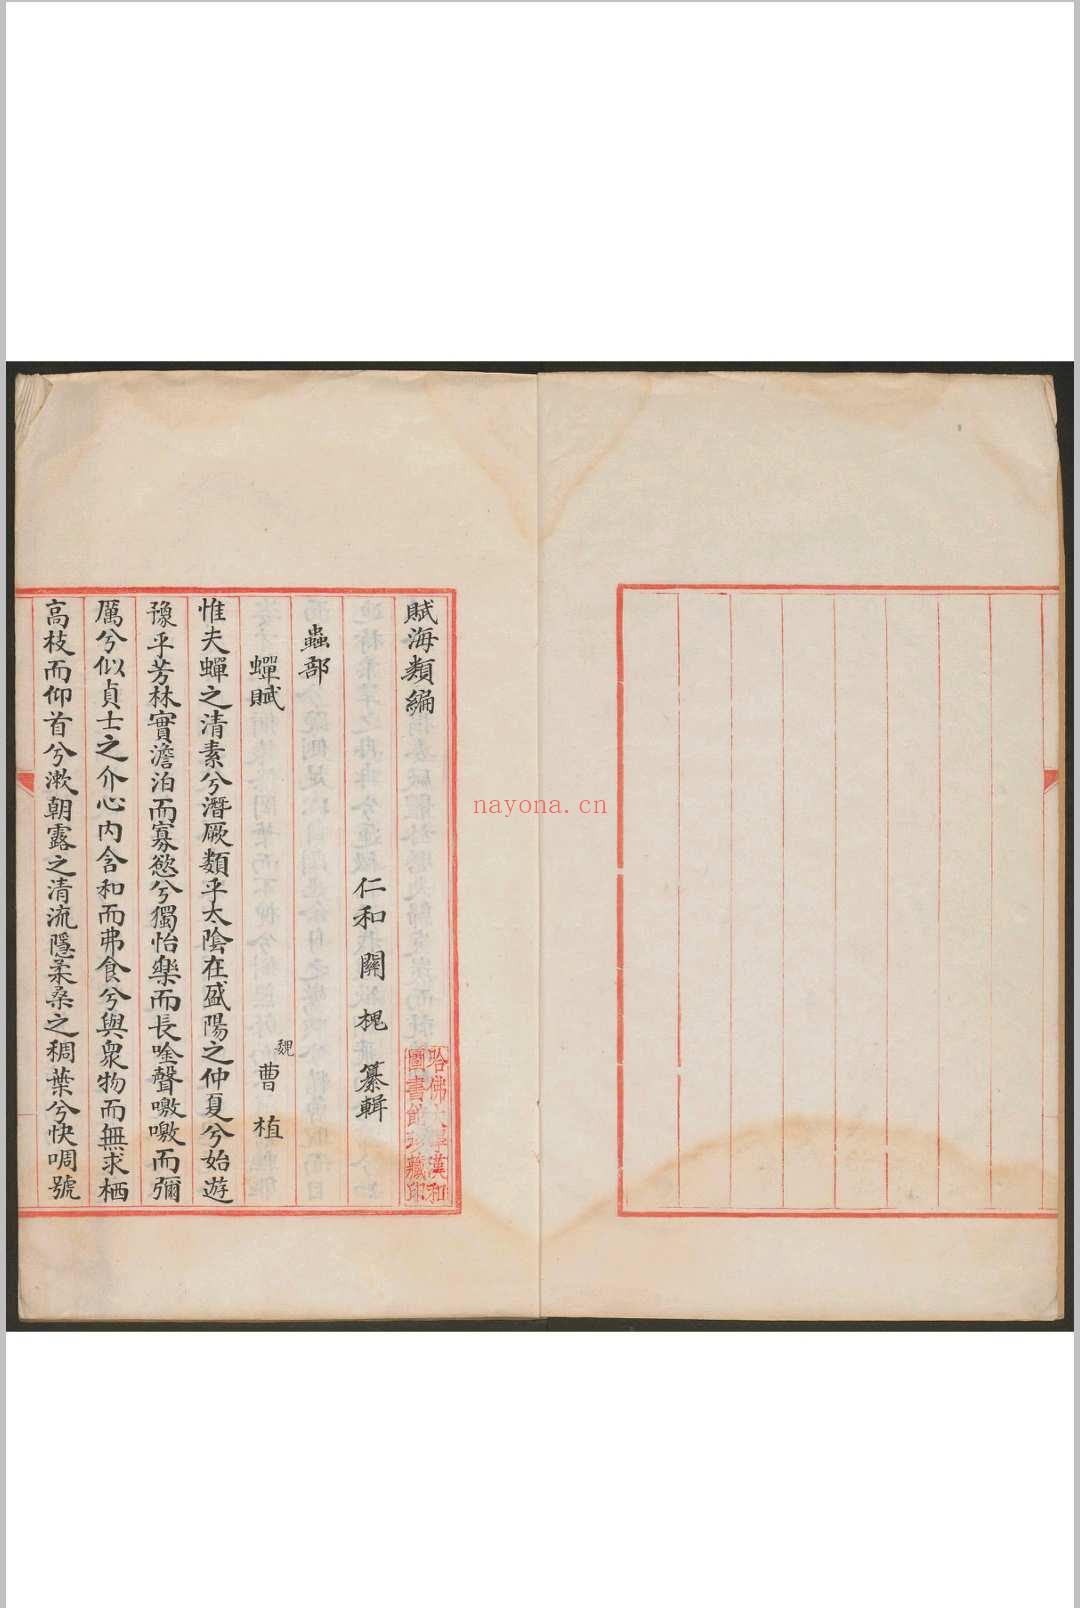 賦海類編
仁和關槐纂輯
蟲部
蟬賦
魏曹植
惟夫蟬之清素兮潛厥類乎太陰在盛陽之仲夏兮始遊
豫乎芳林實澹泊而寡慾兮獨怡樂而長唫聲噭噭而彌
厲兮似貞士之介心內含和而弗食兮與衆物而無求栖
高枝而仰首兮漱朝露之清流隱柔桑之稠葉兮快啁號
哈佛大學漢和
圖書館珍藏印
nayona.cn